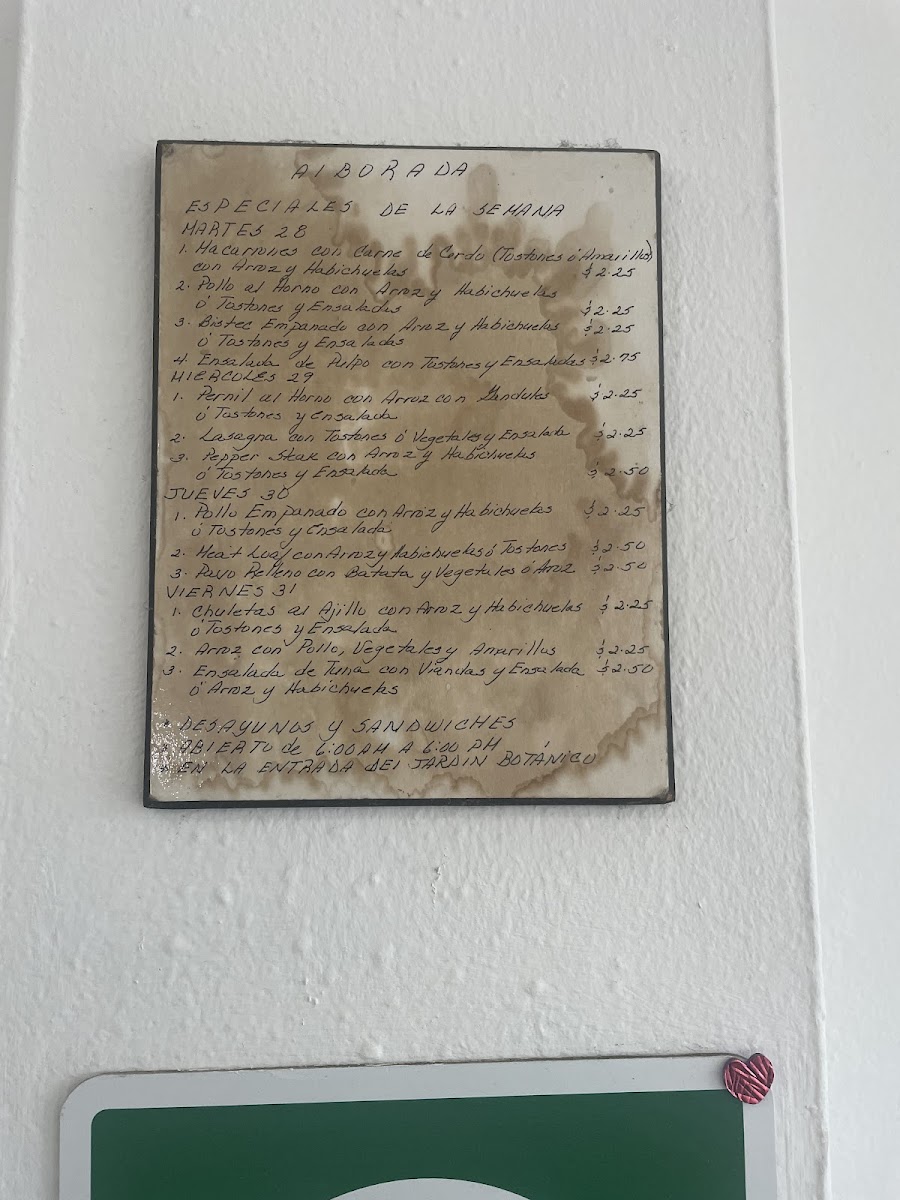 AlBORADA
ESPECIALES DE LA SEMANA
MARTES 28
1. Macarrones con Carne de Cerdo (Tostones ó Amarillos)
con Arroz y Habichuelas $2.25
2. Pollo al Horno con Arroz y Habichuelas
ó Tostones y Ensaladas $2.25
3. Bistec Empanado con Arroz y Habichuelas $2.25
ó Tostones y Ensaladas
4. Ensalada de Pulpo con Tostones y Ensaladas $2.75
MIERCOLES 29
1. Pernil al Horno con Arroz con Gandules $2.25
ó Tostones y Ensalada
2. Lasagna con Tostones ó Vegetales y Ensalada $2.25
3. Pepper Steak con Arroz y Habichuelas
ó Tostones y Ensalada $2.50
JUEVES 30
1. Pollo Empanado con Arroz y Habichuelas $2.25
ó Tostones y Ensalada
2. Meat Loaf con Arroz y Habichuelas ó Tostones $2.50
3. Pavo Relleno con Batata y Vegetales ó Arroz $2.50
VIERNES 31
1. Chuletas al Ajillo con Arroz y Habichuelas $2.25
ó Tostones y Ensalada
2. Arroz con Pollo, Vegetales y Amarillos $2.25
3. Ensalada de Tuna con Viandas y Ensalada $2.50
ó Arroz y Habichuelas
* DESAYUNOS Y SANDWICHES
* ABIERTO de 6:00 AM A 6:00 PM
* EN LA ENTRADA DEl JARDIN BOTÁNICO